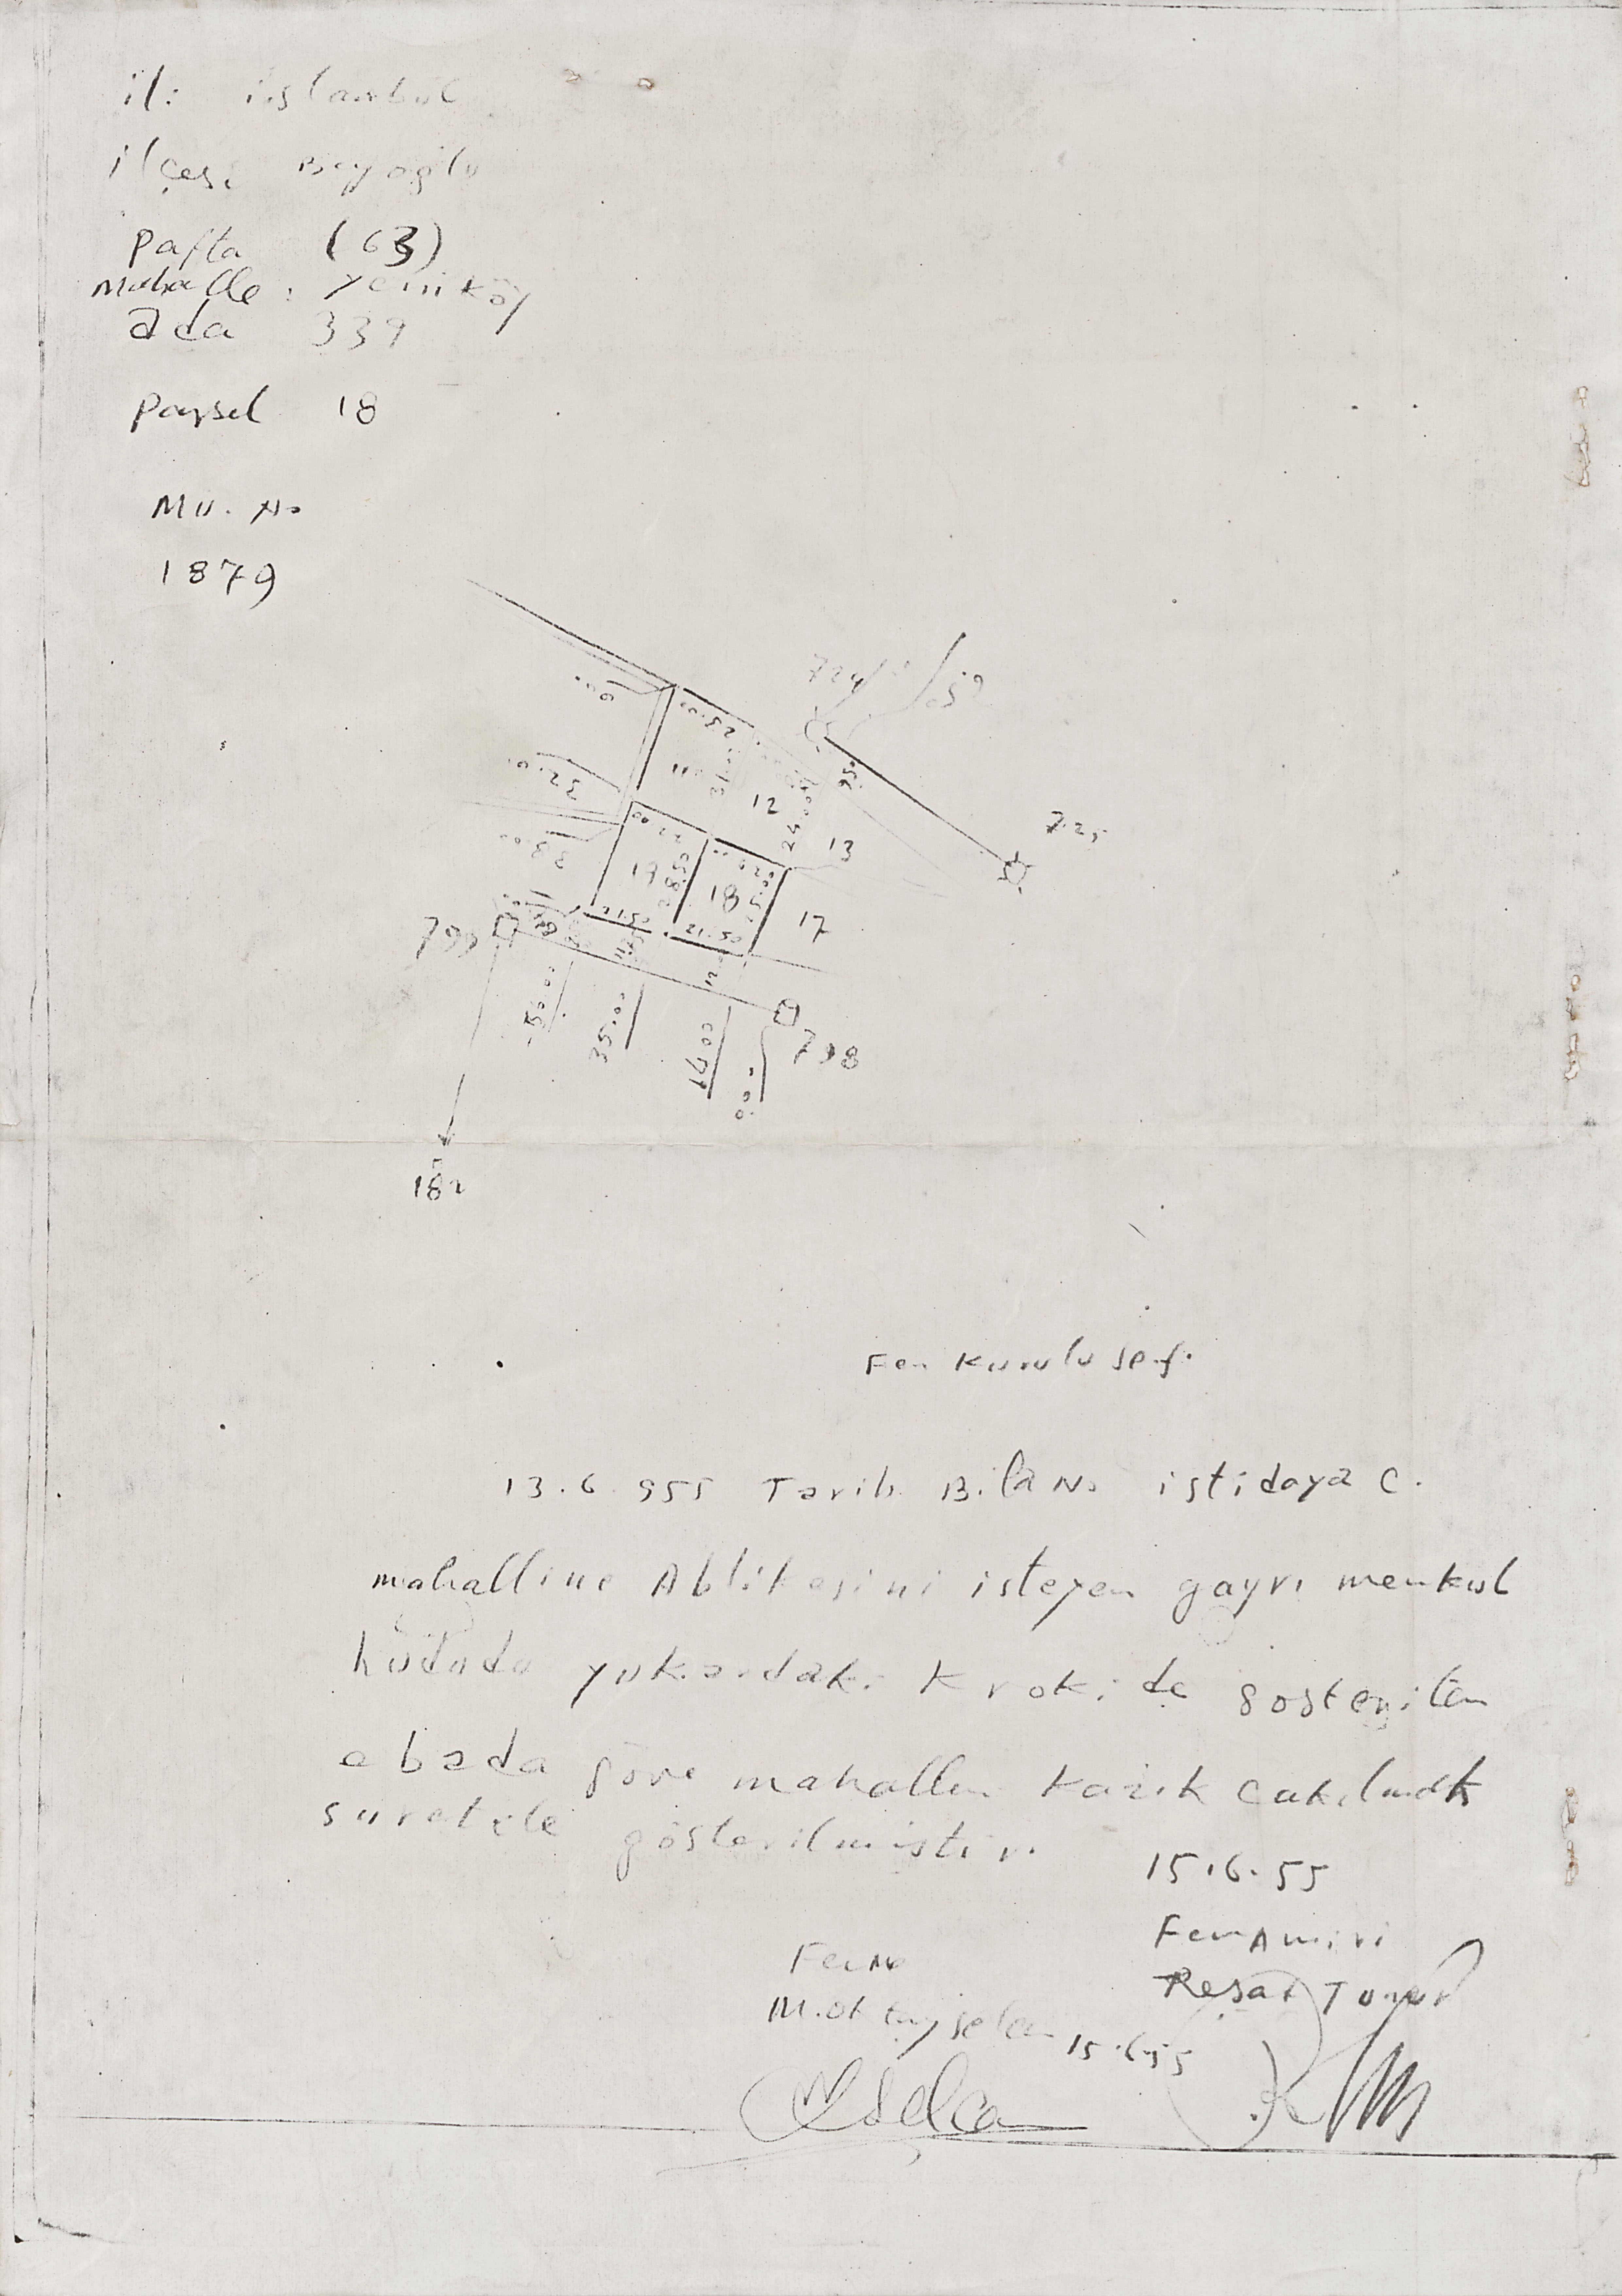 il: istanbul
ilçesi Beyoğlu
pafta (63)
mahalle: yeniköy
ada 339
parsel 18
Mu. No
1879
724
725
25.00
11
31.00
12
24.00
13
32.00
33.00
22.00
19
28.50
18
17
21.50
21.50
799
798
50.00
35.00
14.00
0.00
182
Fen Kurulu şefi
13.6.955 Tarih Bila No istidaya C.
mahalline Ablikesini isteyen gayrı menkul
hududu yukardaki krokide gösterilen
ebada göre mahallen kazık çakılmak
suretile gösterilmiştir.
15.6.55
Fen Amiri
Reşat
Fen
M. Oktay Selen 15.6.55